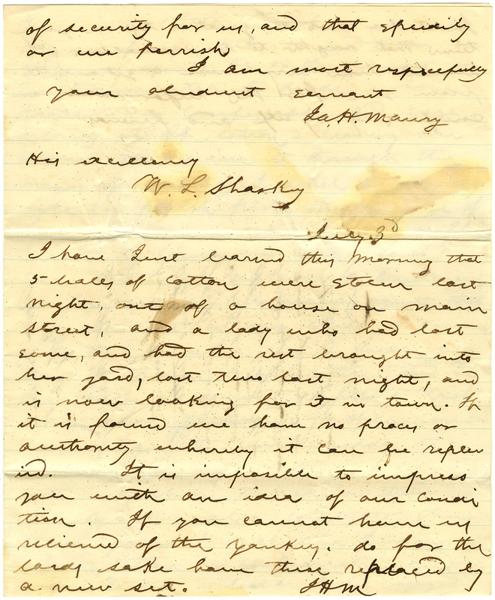 of security for us, and that speedily
or we perrish
I am most respectfully
your obedient servant
Ja. H. Maury
His excellency
W. L. Sharkey
July 3d
I have Just learned this Morning that
5 bales of cotton were stolen last
night, out of a house on main
street, and a lady who had lost
some, and had the rest brought into
her yard, lost two last night, and
is now looking for it in town. If
it is found we have no process or
authority whereby it can be replev
ied. It is impossible to impress
you with an idea of our condi
tion. If you cannot have us
relieved of the yankey. do for the
lords sake have these replaced by
a new set. JHM